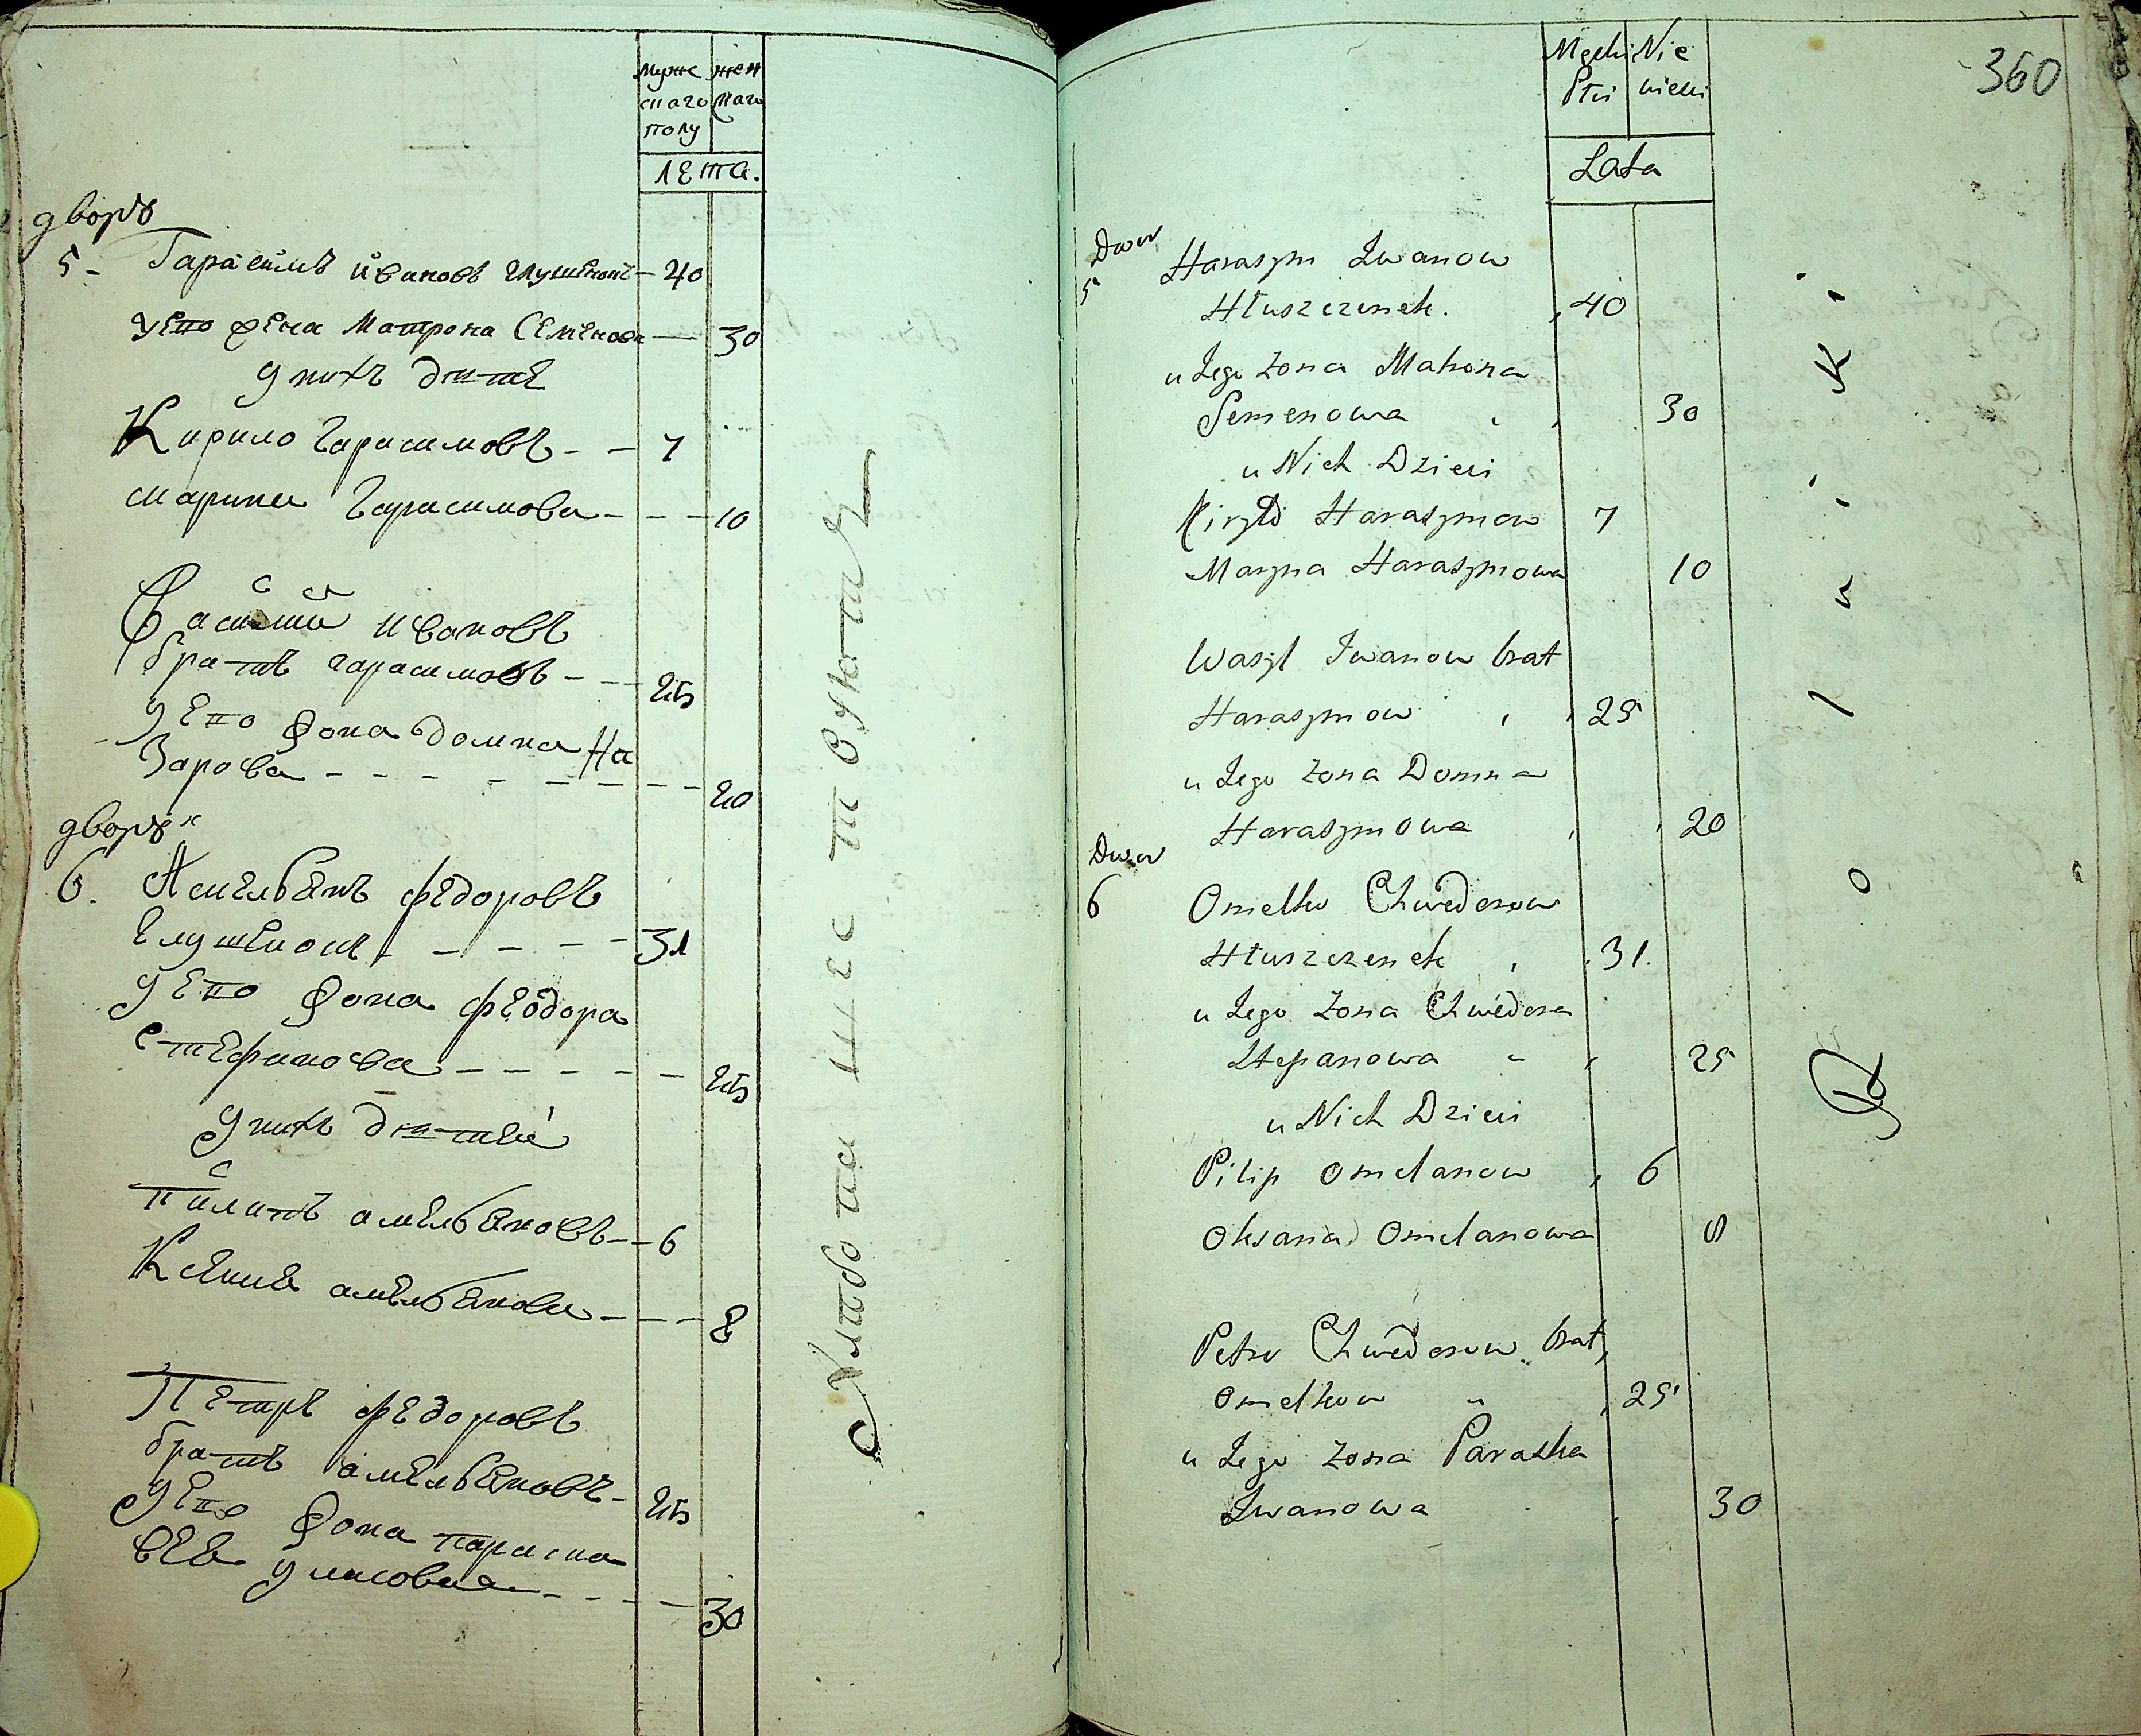 Мужс
скаго
полу
жен
скаго
лета.
дворъ
5. Гарасимъ Ивановъ Глушенокъ 40
у его жена Матрона Семенова 30
у нихъ дети
Кирило Гарасимовъ 7
Марина Гарасимова 10
Василий Ивановъ
братъ Гарасимовъ 25
у его жона Домна На
Зарова 20
дворъ
6. Амельянъ Федоровъ
Глушенокъ 31
у его жона Феодора
Стефанова 25
у нихъ дитей
Пилипъ амельяновъ 6
Ксения амельянова 8
Петръ Федоровъ
братъ амельяновъ 25
у его жона параска
30
360
Męski
Płci
Nie
wieści
Lata
Dwor
5 Haraszm Iwanow
Hłuszczenek. 40
u Jego żona Matrona
Semenowa 30
u Nich Dzieci
Kiryło Haraszmow 7
Maryna Haraszmowa 10
Wasyl Iwanow brat
Haraszmow 25
u Jego żona Domna
Haraszmowa 20
Dwor
6 Omelko Chwedorow
Hłuszczenek 31.
u Jego żona Chwedora
Stepanowa 25
u Nich Dzieci
Pilip Omelanow 6
Oksana Omelanowa 8
Petro Chwedorow brat
Omelkow 25
u Jego żona Paraska
Iwanowa 30